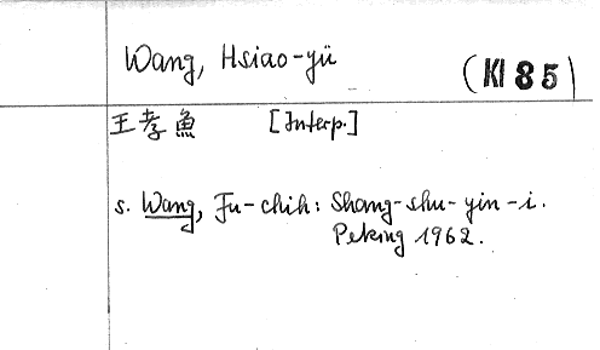 Wang, Hsiao-yü
(KI 85)
王孝魚 [Interp.]
s. Wang, Fu-chih: Shang-shu-yin-i.
Peking 1962.